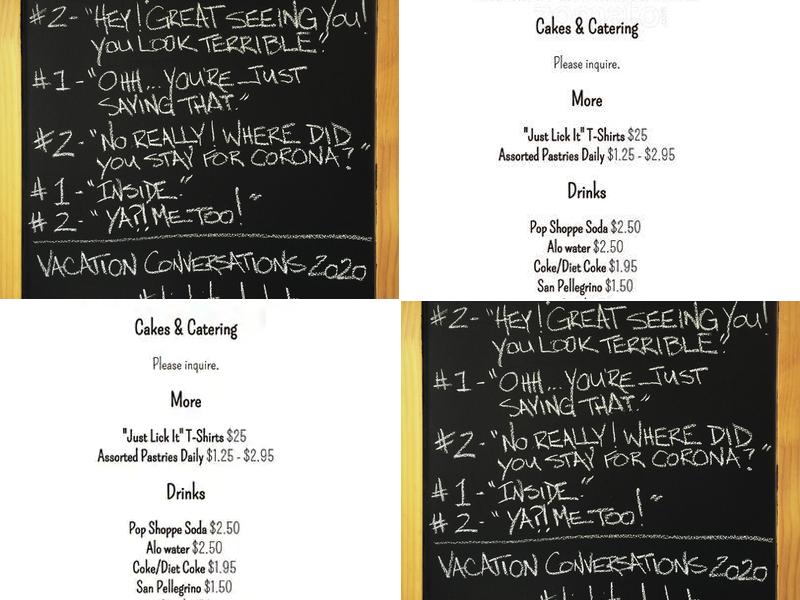 #2-"HEY! GREAT SEEING YOU!
YOU LOOK TERRIBLE."
#1-"OHH...YOU'RE JUST
SAYING THAT."
#2-"NO REALLY! WHERE DID
YOU STAY FOR CORONA?"
#1-"INSIDE."
#2-"YA?! ME TOO!"
VACATION CONVERSATIONS 2020
Cakes & Catering
Please inquire.
More
"Just Lick It" T-Shirts $25
Assorted Pastries Daily $1.25 - $2.95
Drinks
Pop Shoppe Soda $2.50
Alo water $2.50
Coke/Diet Coke $1.95
San Pellegrino $1.50
Cakes & Catering
Please inquire.
More
"Just Lick It" T-Shirts $25
Assorted Pastries Daily $1.25 - $2.95
Drinks
Pop Shoppe Soda $2.50
Alo water $2.50
Coke/Diet Coke $1.95
San Pellegrino $1.50
#2-"HEY! GREAT SEEING YOU!
YOU LOOK TERRIBLE."
#1-"OHH...YOU'RE JUST
SAYING THAT."
#2-"NO REALLY! WHERE DID
YOU STAY FOR CORONA?"
#1-"INSIDE."
#2-"YA?! ME TOO!"
VACATION CONVERSATIONS 2020